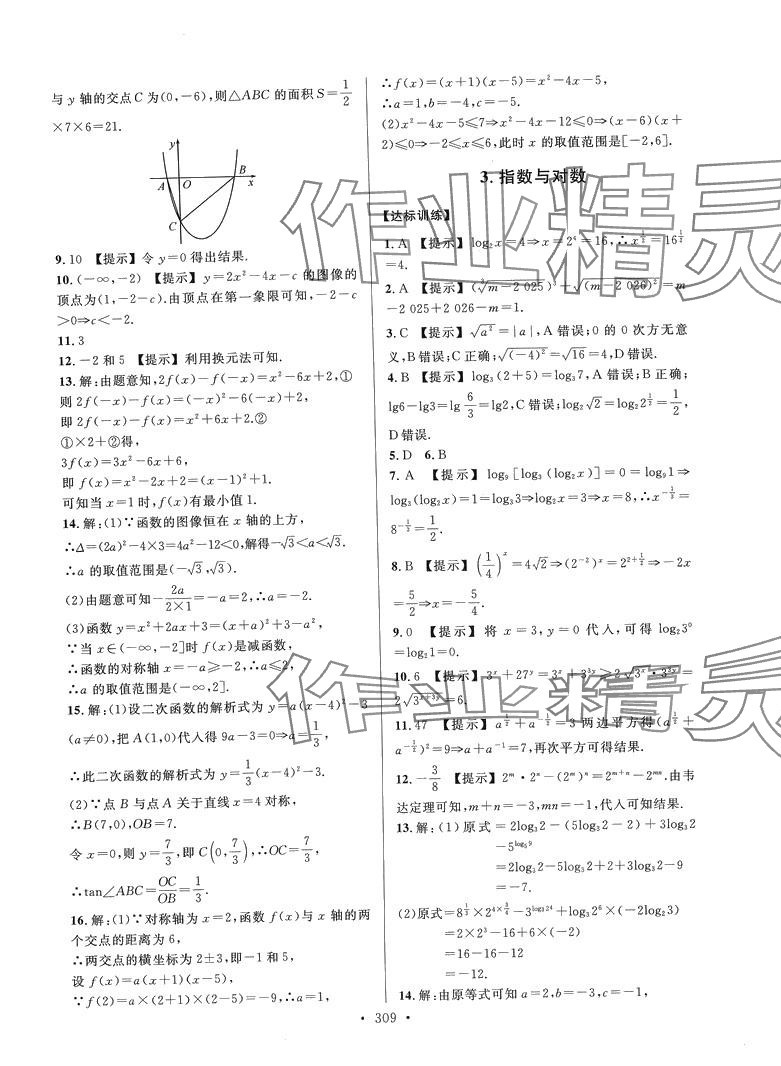 与 y 轴的交点 C 为(0,-6),则△ABC 的面积 S=1/2
×7×6=21.
y
A O B x
C
9. 10 【提示】令 y=0 得出结果.
10. (-∞,-2) 【提示】y=2x²-4x-c 的图像的
顶点为(1,-2-c).由顶点在第一象限可知,-2-c
>0⇒c<-2.
11. 3
12. -2 和 5 【提示】利用换元法可知.
13. 解:由题意知,2f(x)-f(-x)=x²-6x+2,①
则 2f(-x)-f(x)=(-x)²-6(-x)+2,
即 2f(-x)-f(x)=x²+6x+2.②
①×2+②得,
3f(x)=3x²-6x+6,
即 f(x)=x²-2x+2=(x-1)²+1.
可知当 x=1 时,f(x)有最小值 1.
14. 解:(1)∵函数的图像恒在 x 轴的上方,
∴Δ=(2a)²-4×3=4a²-12<0,解得-√3<a<√3.
∴a 的取值范围是(-√3,√3).
(2)由题意可知-2a/(2×1)=-a=2,∴a=-2.
(3)函数 y=x²+2ax+3=(x+a)²+3-a²,
∵当 x∈(-∞,-2]时 f(x)是减函数,
∴函数的对称轴 x=-a≥-2,∴a≤2,
∴a 的取值范围是(-∞,2].
15. 解:(1)设二次函数的解析式为 y=a(x-4)²-3
(a≠0),把 A(1,0)代入得 9a-3=0⇒a=1/3,
∴此二次函数的解析式为 y=1/3(x-4)²-3.
(2)∵点 B 与点 A 关于直线 x=4 对称,
∴B(7,0),OB=7.
令 x=0,则 y=7/3,即 C(0,7/3),∴OC=7/3,
∴tan∠ABC=OC/OB=1/3.
16. 解:(1)∵对称轴为 x=2,函数 f(x)与 x 轴的两
个交点的距离为 6,
∴两交点的横坐标为 2±3,即-1 和 5,
设 f(x)=a(x+1)(x-5),
∵f(2)=a×(2+1)×(2-5)=-9,∴a=1,
∴f(x)=(x+1)(x-5)=x²-4x-5,
∴a=1,b=-4,c=-5.
(2)x²-4x-5≤7⇒x²-4x-12≤0⇒(x-6)(x+
2)≤0⇒-2≤x≤6,此时 x 的取值范围是[-2,6].
3. 指数与对数
【达标训练】
1. A 【提示】log₂x=4⇒x=2⁴=16,∴x^(1/2)=16^(1/2)
=4.
2. A 【提示】(∛(m-2 025))³-√(m-2 026)²=m
-2 025+2 026-m=1.
3. C 【提示】√a²=|a|,A 错误;0 的 0 次方无意
义,B 错误;C 正确;√(-4)²=√16=4,D 错误.
4. B 【提示】log₃(2+5)=log₃7,A 错误;B 正确;
lg6-lg3=lg 6/3=lg2,C 错误;log₂√2=log₂2^(1/2)=1/2,
D 错误.
5. D 6. B
7. A 【提示】log₉[log₃(log₂x)]=0=log₉1⇒
log₃(log₂x)=1=log₃3⇒log₂x=3⇒x=8,∴x^(-1/3)=
8^(-1/3)=1/2.
8. B 【提示】(1/4)^x=4√2⇒(2⁻²)^x=2^(2+1/2)⇒-2x
=5/2⇒x=-5/4.
9. 0 【提示】将 x=3,y=0 代入,可得 log₂3⁰
=log₂1=0.
10. 6 【提示】3^x+27^y=3^x+3^(3y)≥2√(3^x·3^(3y))=
2√(3^(x+3y))=6.
11. 47 【提示】a^(1/2)+a^(-1/2)=3 两边平方得(a^(1/2)+
a^(-1/2))²=9⇒a+a⁻¹=7,再次平方可得结果.
12. -3/8 【提示】2^m·2^n-(2^m)^n=2^(m+n)-2^(mn).由韦
达定理可知,m+n=-3,mn=-1,代入可知结果.
13. 解:(1)原式=2log₃2-(5log₃2-2)+3log₃2
-5^(log₅9)
=2log₃2-5log₃2+2+3log₃2-9
=-7.
(2)原式=8^(1/3)×2^(4×3/4)-3^(log₃24)+log₃2⁶×(-2log₂3)
=2×2³-16+6×(-2)
=16-16-12
=-12.
14. 解:由原等式可知 a=2,b=-3,c=-1,
· 309 ·
作业精灵
作业精灵